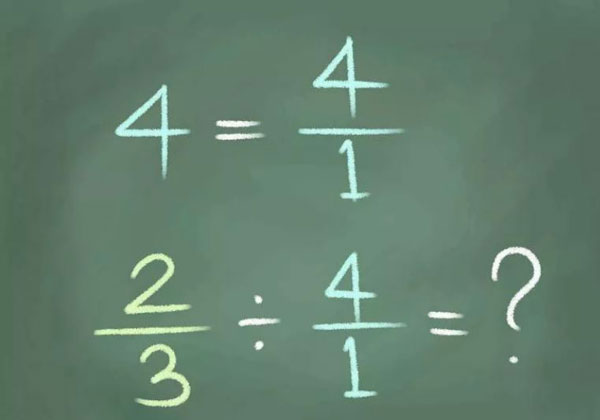 4 = 4/1
2/3 ÷ 4/1 = ?